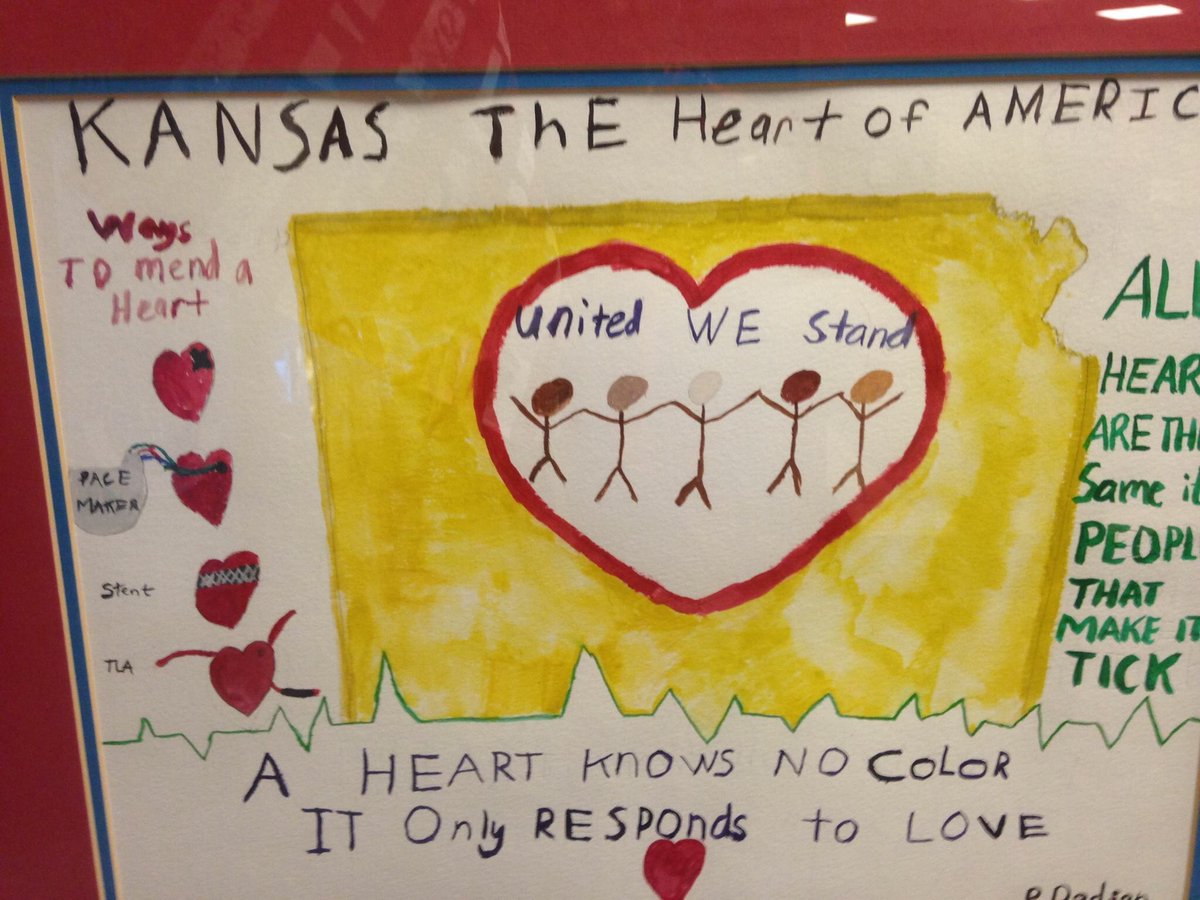 KANSAS THE Heart of AMERIC
Ways
TO mend a
Heart
PACE
MAKER
Stent
TLA
United WE Stand
ALL
HEAR
ARE THE
Same it
PEOPL
THAT
MAKE IT
TICK
A HEART KNOWS NO COLOR
IT Only RESPONDS to LOVE